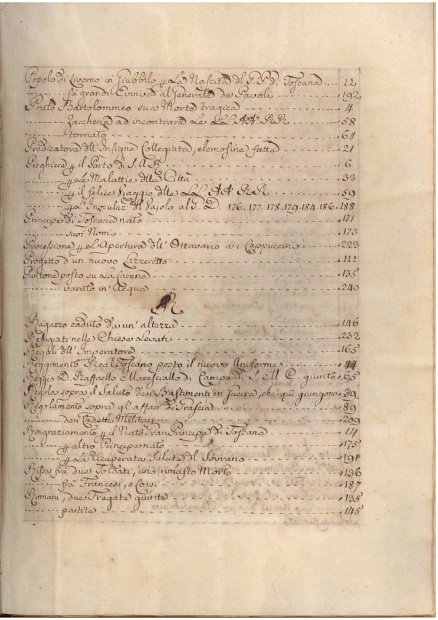 Popolo di Livorno in Giubbilo p La Nascita d. P. P. di Toscana 22
fa grandi Evviva al Generale de Paoli 192
Prato Bartolommeo sua Morte tragica 4
Zaccheria ad incontrare Le LL. AA. RR. 58
ritornato 64
Predicatore dell' Insigne Collegiata, elemosine fatta 21
Preghiere p il Parto di S. A. R. 6
p Le Malattie della Città 33
p il felice Viaggio delle LL. AA. RR. 59
176. 177. 178. 179. 184. 186. 188
Principe di Toscana nato 171
suoi Nomi 173
Processione p L'Apertura dell' Ottavario a i Cappuccini 223
Progetto d'un nuovo Lazzeretto 122
Puntone posto su La Carena 135
varato in Acqua 240
R
Ragazzo caduto da un' altezza 146
Refugiati nelle Chiese Levati 232
Regali dell' Imperatore 165
Reggimento Real Toscano posto il nuovo Uniforme 44
Reggio D. Raffaello Maresciallo di Campo di S. M. C. giunto 65
Regola sopra il Saluto dei Bastimenti in Guerra che quì giungono 39
Regolamento sopra gl' affari di Grascia 89
dei Cadetti Militari 209
Ringraziamento p il Nato Gran Principe di Toscana 14
p altro Principe nato 175
p La Recuperata Salute del Sovrano 191
Rissa fra due Soldati, uno rimasto Morto 136
fra Francesi, e Corsi 187
Romani, due Fregate giunte 133
partite 145